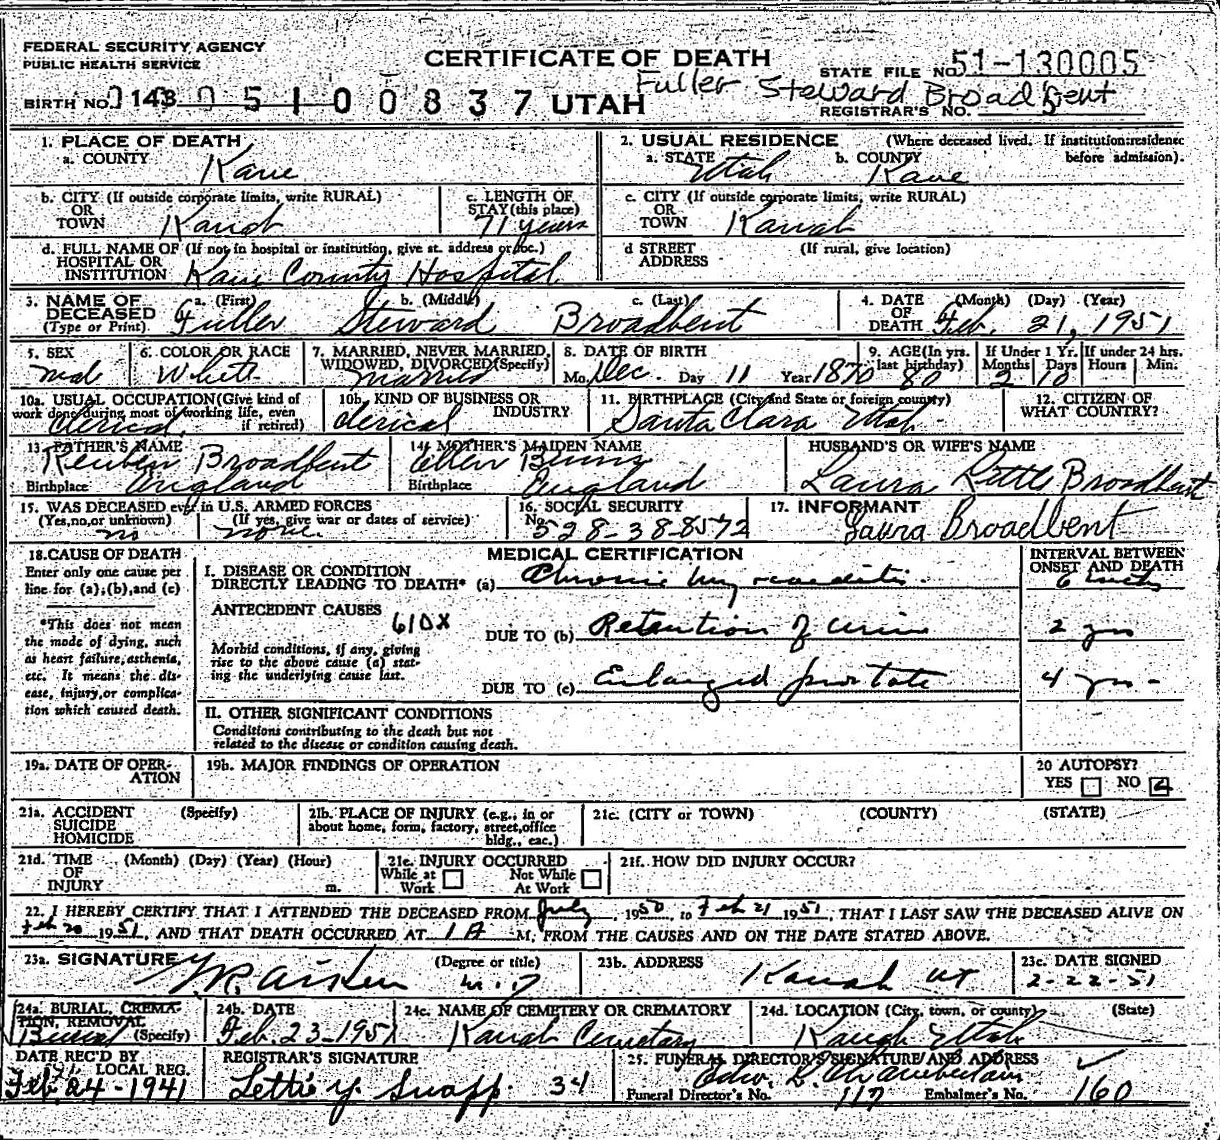 FEDERAL SECURITY AGENCY
PUBLIC HEALTH SERVICE
CERTIFICATE OF DEATH
STATE FILE NO. 51-130005
Fuller Steward Broadbent
BIRTH NO. 143 05100837 UTAH
REGISTRAR'S NO. 5
1. PLACE OF DEATH
a. COUNTY Kane
2. USUAL RESIDENCE (Where deceased lived. If institution:residence before admission).
a. STATE Utah b. COUNTY Kane
b. CITY (If outside corporate limits, write RURAL)
OR
TOWN Kanab
c. LENGTH OF
STAY (this place)
71 years
c. CITY (If outside corporate limits, write RURAL)
OR
TOWN Kanab
d. FULL NAME OF (If not in hospital or institution, give st. address or loc.)
HOSPITAL OR
INSTITUTION Kane County Hospital
d STREET (If rural, give location)
ADDRESS
3. NAME OF
DECEASED
(Type or Print)
a. (First) b. (Middle) c. (Last)
Fuller Steward Broadbent
4. DATE (Month) (Day) (Year)
OF
DEATH Feb. 21, 1951
5. SEX
6. COLOR OR RACE
White
7. MARRIED, NEVER MARRIED,
WIDOWED, DIVORCED(Specify)
Married
8. DATE OF BIRTH
Mo. Dec. Day 11 Year 1870
9. AGE(In yrs.
last birthday) 80
If Under 1 Yr.
Months Days
2 10
If under 24 hrs.
Hours Min.
10a. USUAL OCCUPATION(Give kind of
work done during most of working life, even
if retired)
Clerical
10b. KIND OF BUSINESS OR
INDUSTRY
Clerical
11. BIRTHPLACE (City and State or foreign county)
Santa Clara Utah
12. CITIZEN OF
WHAT COUNTRY?
13. FATHER'S NAME
Reuben Broadbent
Birthplace England
14. MOTHER'S MAIDEN NAME
Ellen
Birthplace England
HUSBAND'S OR WIFE'S NAME
Laura Broadbent
15. WAS DECEASED ever in U.S. ARMED FORCES
(Yes,no,or unknown) (If yes, give war or dates of service)
no none.
16. SOCIAL SECURITY
No. 528-38-8572
17. INFORMANT
Laura Broadbent
18. CAUSE OF DEATH
Enter only one cause per
line for (a),(b),and (c)
*This does not mean
the mode of dying, such
as heart failure, asthenia,
etc. It means the dis-
ease, injury, or complica-
tion which caused death.
MEDICAL CERTIFICATION
INTERVAL BETWEEN
ONSET AND DEATH
I. DISEASE OR CONDITION
DIRECTLY LEADING TO DEATH* (a) Chronic myocarditis
ANTECEDENT CAUSES
610X
DUE TO (b) Retention of urine 2 yrs
Morbid conditions, if any, giving
rise to the above cause (a) stat-
ing the underlying cause last.
DUE TO (c) Enlarged prostate 4 yrs-
II. OTHER SIGNIFICANT CONDITIONS
Conditions contributing to the death but not
related to the disease or condition causing death.
19a. DATE OF OPER-
ATION
19b. MAJOR FINDINGS OF OPERATION
20 AUTOPSY?
YES NO
21a. ACCIDENT (Specify)
SUICIDE
HOMICIDE
21b. PLACE OF INJURY (e.g., in or
about home, form, factory, street,office
bldg., eac.)
21c. (CITY or TOWN) (COUNTY) (STATE)
21d. TIME (Month) (Day) (Year) (Hour)
OF
INJURY m.
21e. INJURY OCCURRED
While at Not While
Work At Work
21f. HOW DID INJURY OCCUR?
22. I HEREBY CERTIFY THAT I ATTENDED THE DECEASED FROM July, 1950, to Feb 21 1951, THAT I LAST SAW THE DECEASED ALIVE ON
Feb 20 1951, AND THAT DEATH OCCURRED AT 1 A M, FROM THE CAUSES AND ON THE DATE STATED ABOVE.
23a. SIGNATURE (Degree or title)
Aiken M.D
23b. ADDRESS
Kanab UT
23c. DATE SIGNED
2-22-51
24a. BURIAL, CREMA-
TION, REMOVAL
Burial (Specify)
24b. DATE
Feb. 23-1951
24c. NAME OF CEMETERY OR CREMATORY
Kanab Cemetary
24d. LOCATION (City, town, or county) (State)
Kanab Utah
DATE REC'D BY
LOCAL REG.
Feb. 24-1941
REGISTRAR'S SIGNATURE
Lettie Y. Swapp. 34
25. FUNERAL DIRECTOR'S SIGNATURE AND ADDRESS
Chamberlain
Funeral Director's No. 117 Embalmer's No. 160